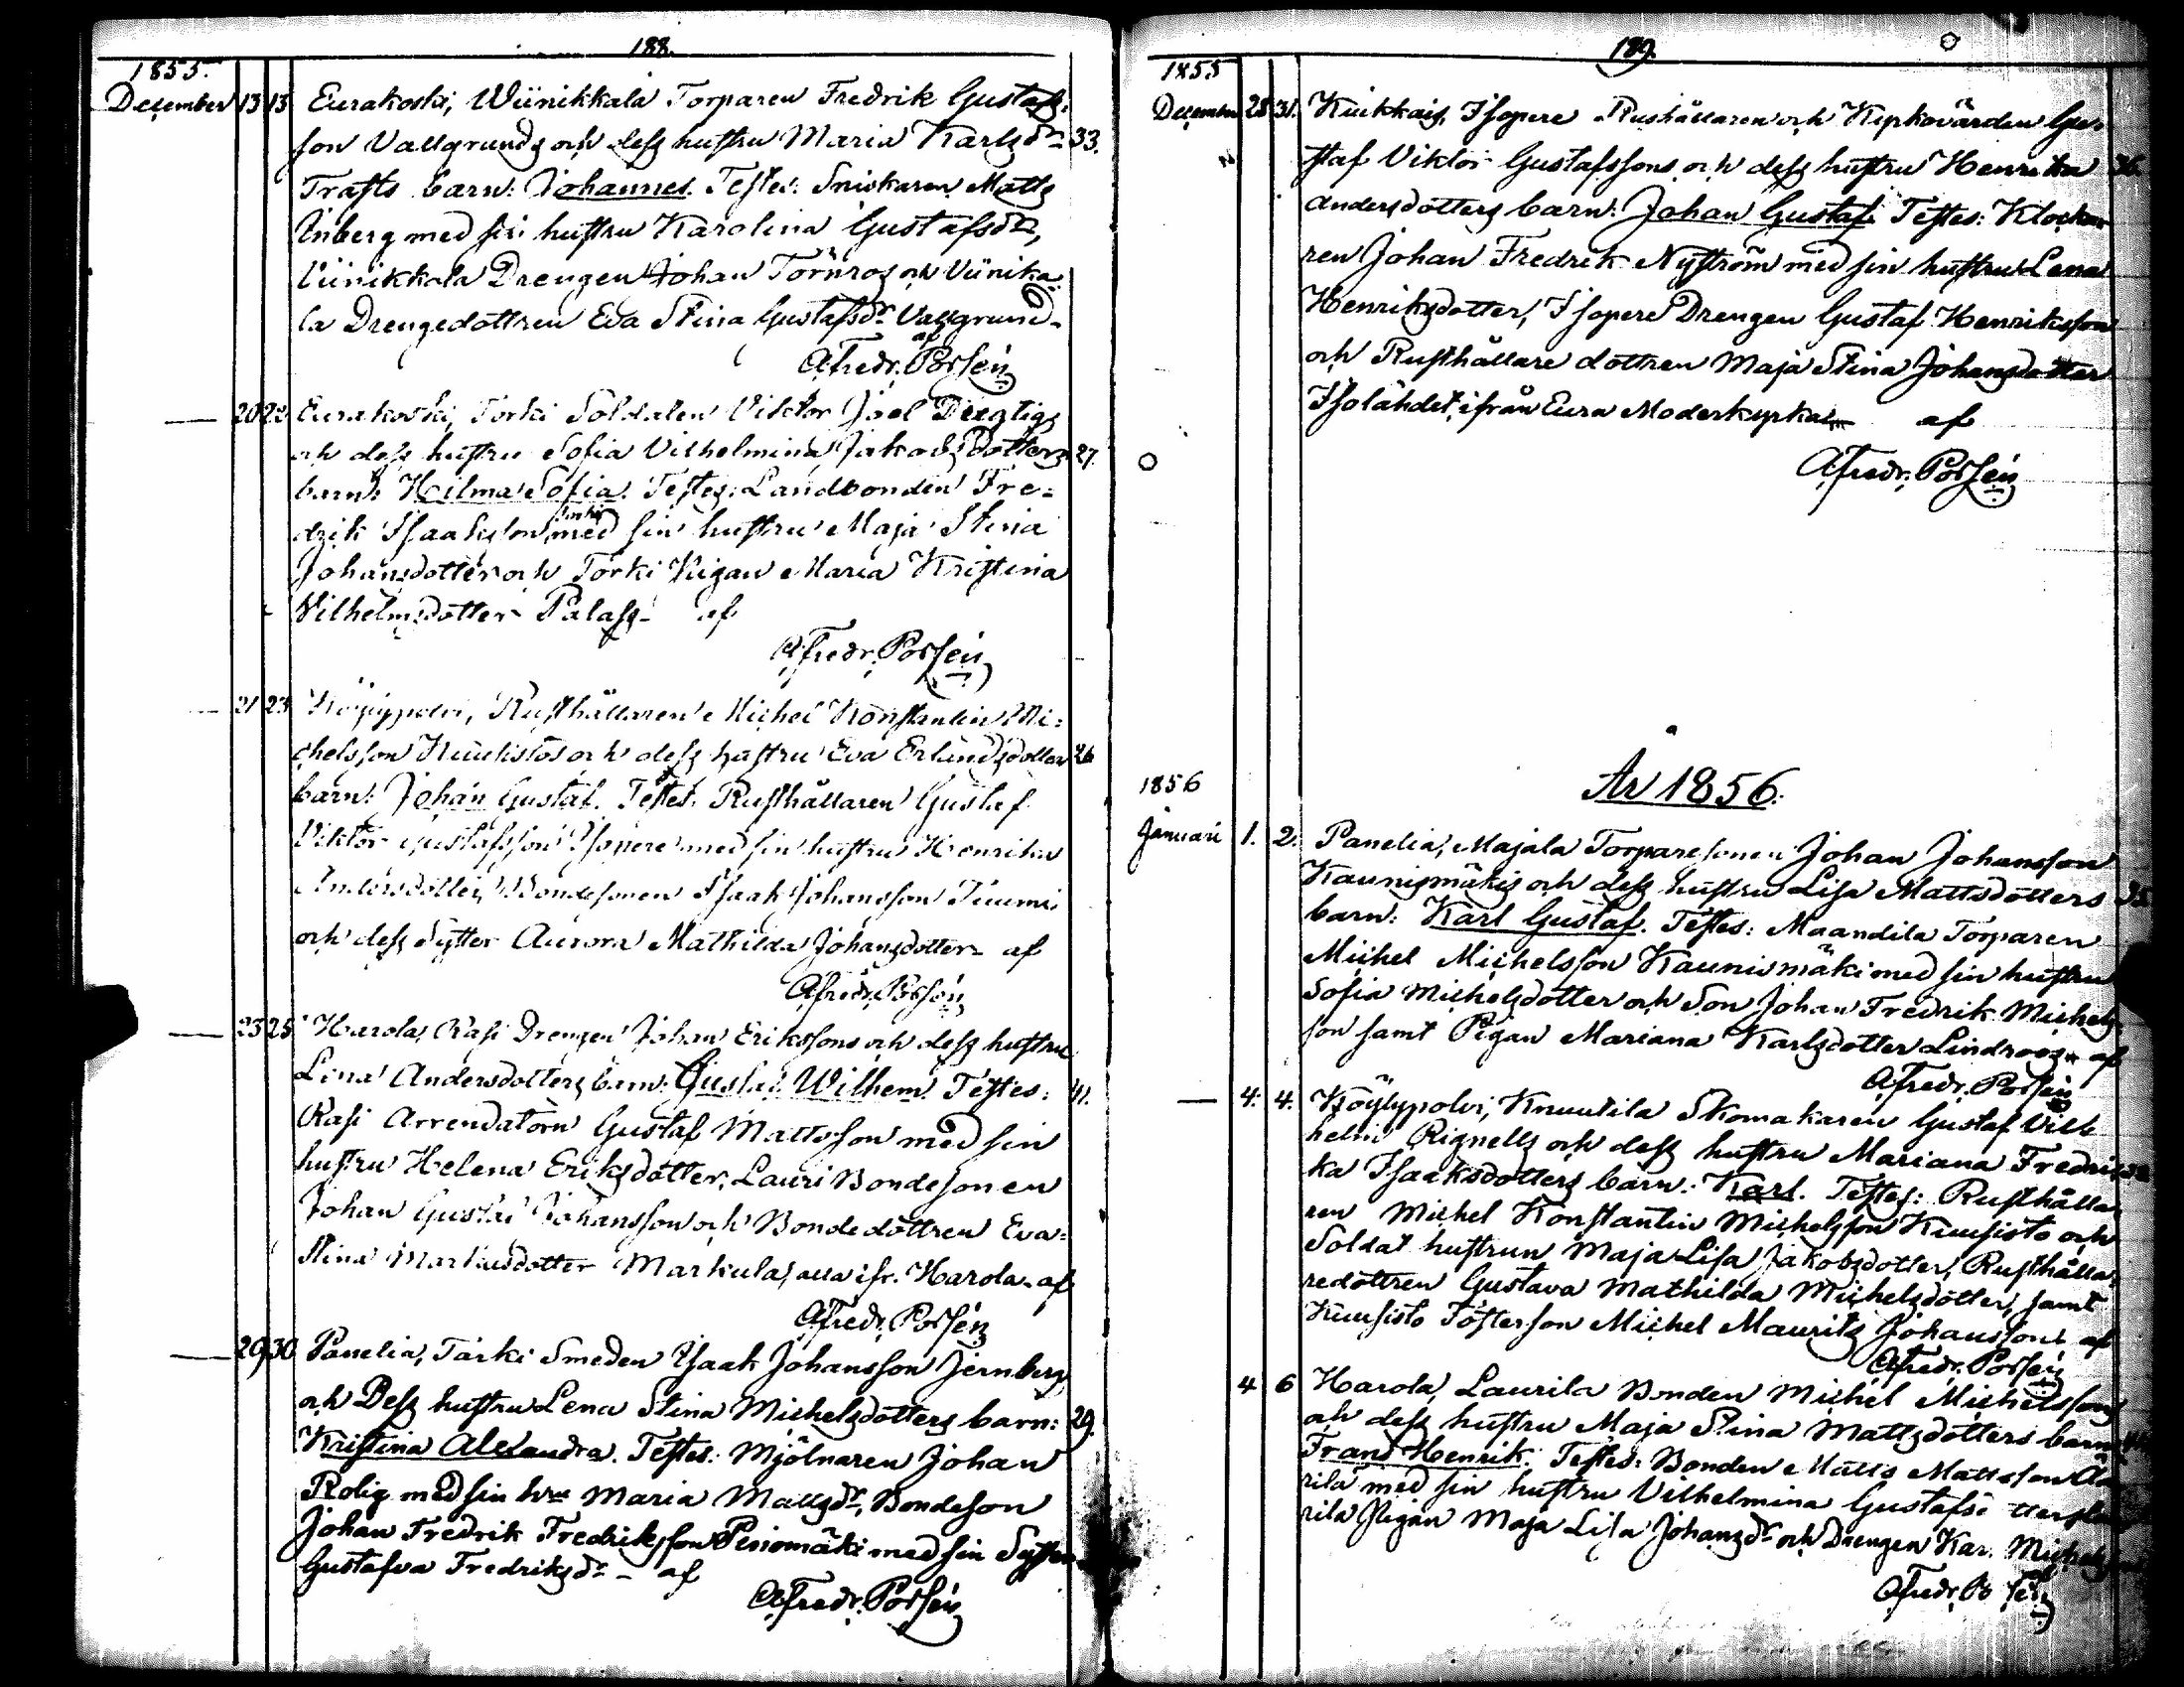 188.
1855.
December 13 15 Eurakoski, Wiinikkala Torparen Fredrik Gustafs-
son Vallgrunds och dess hustru Maria Karlsdr 33.
Trafts barn: Johannes. Testes: Sniskaren Matts
Inberg med sin hustru Karolina Gustafsdr,
Viinikkala Drengen Johan Törnros och Viinika
la Drengedottren Eva Stina Gustafsdr Vallgrund-
af
AFredr. Porsén
— 20 22 Eurakoski, Torki Soldaten Viktor Joel Dugtigs
och dess hustru Sofia Vilhelmina Jakobsdotters 27.
barn: Hilma Sofia. Testes: Landbonden Fre-
drik Isaaksson med sin hustru Maja Stina
Johansdotter och Torki Pigan Maria Kristina
Vilhelmsdotter Palass- af
AFredr. Porsén
— 21 23 Köylypolvi, Rusthållaren Michel Konstantin Mi-
chelsson Kuusistos och dess hustru Eva Erlandsdotters 26
barn: Johan Gustaf. Testes: Rusthållaren Gustaf
Viktor Gustafsson Isopere med sin hustru Henrika
Andersdotter, Bondesonen Isaak Johansson Tuumi
och dess Syster Aurora Mathilda Johansdotter- af
AFredr. Porsén
— 23 25 Harola, Rasi Drengen Johan Erikssons och dess hustru
Lena Andersdotters barn: Gustaf Wilhem. Testes: 41.
Rasi Arrendatorn Gustaf Mattsson med sin
hustru Helena Eriksdotter, Lauri Bondesonen
Johan Gustaf Johansson och Bondedottren Eva
Stina Markusdotter Markula, alla ifr. Harola- af
AFredr. Porsén
— 29 30 Panelia, Tarki Smeden Isaak Johansson Jernberg
och Dess hustru Lena Stina Michelsdotters barn: 29.
Kristina Alexandra. Testes: Mjölnaren Johan
Rolig med sin hru Maria Mattsdr, Bondeson
Johan Fredrik Fredriksson Penomäki med sin Syster
Gustafva Fredriksdr- af
AFredr. Porsén
189.
1855
December 28 31. Kiukkais, Isopere Rusthållaren och Kyrkovärden Gu-
staf Viktor Gustafssons och dess hustru Henrika 36.
Andersdotters barn: Johan Gustaf. Testes: Klocka-
ren Johan Fredrik Nyström med sin hustru Lena
Henriksdotter, Isopere Drengen Gustaf Henriksson
och Rusthållare dottren Maja Stina Johansdotter
Isolähdet, ifrån Eura Moderkyrka- af
AFredr. Porsén
År 1856.
1856
Januari 1. 2. Panelia, Majala Torparesonen Johan Johansson
Kaunismäkis och dess hustru Lisa Mattsdotters 35
barn: Karl Gustaf. Testes: Maandila Torparen
Michel Michelsson Kaunismäki med sin hustru
Sofia Michelsdotter och Son Johan Fredrik Michels-
son samt Pigan Mariana Karlsdotter Lindroos af
AFredr. Porsén
— 4. 4. Köylypolvi, Knuutila Skomakaren Gustaf Vil
helm Rignells och dess hustru Mariana Fredri
ka Isaksdotters barn: Karl. Testes: Rusthålla
ren Michel Konstantin Michelsson Kuusisto och
Soldat hustrun Maja Lisa Jakobsdotter, Rusthålla-
redottren Gustava Mathilda Michelsdotter, samt
Kuusisto Fosterson Michel Maurits Johansson, af
AFredr. Porsén
4 6 Harola, Laurila Bonden Michel Michelssons
och dess hustru Maja Stina Mattsdotters barn
Frans Henrik. Testes: Bonden Matts Mattsson
rila med sin hustru Vilhelmina
rila Pigan Maja Lisa Johansdr och Drengen Kar. Michelsson
AFredr. Porsén